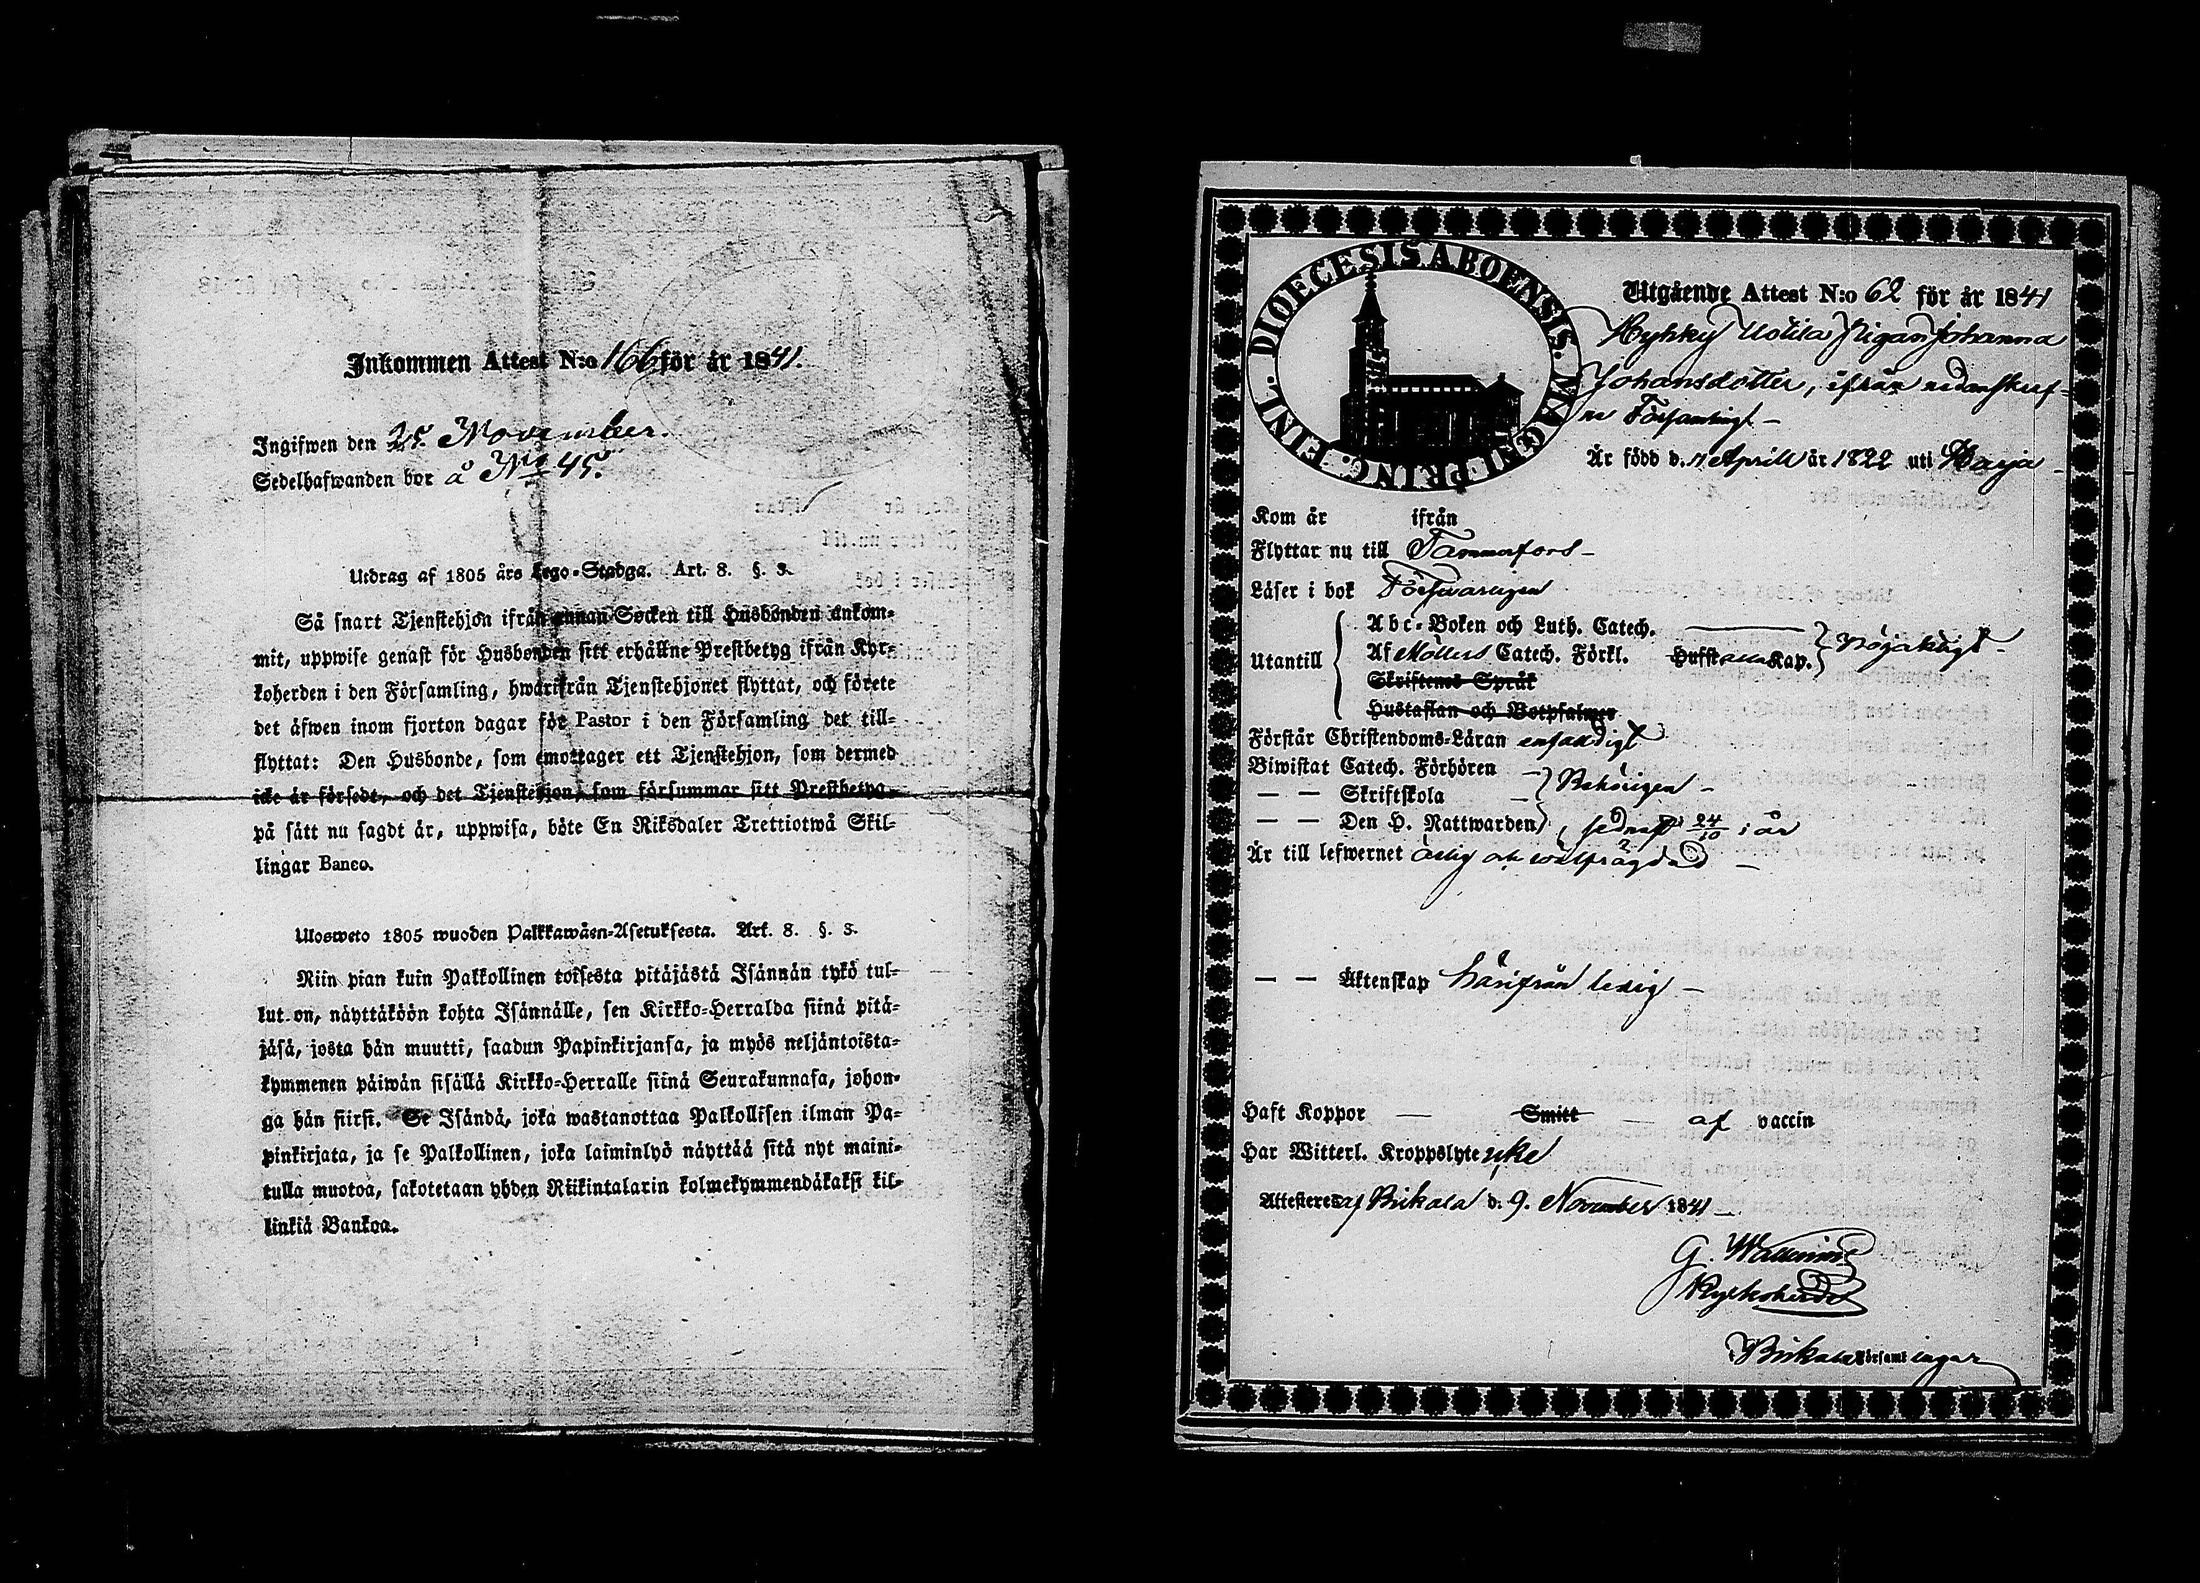 Inkommen Attest N:o 166 för år 1841.
Ingifwen den 25. November.
Sedelhafwanden bor å No 45.
Utdrag af 1805 års Lego-Stadga. Art. 8. §. 3.
Så snart Tjenstehjon ifrån annan Socken till Husbonden ankom-
mit, uppwise genast för Husbonden sitt erhållne Prestbetyg ifrån Kyr-
koherden i den Församling, hwarifrån Tjenstehjonet flyttat, och förete
det äfwen inom fjorton dagar för Pastor i den Församling det till-
flyttat: Den Husbonde, som emottager ett Tjenstehjon, som dermed
icke är försedt, och det Tjenstehjon, som försummar sitt Prestbetyg,
på sätt nu sagdt är, uppwisa, böte En Riksdaler Trettiotwå Skil-
lingar Banco.
Ulosweto 1805 wuoden Palkkawäen-Asetuksesta. Art. 8. §. 3.
Niin pian kuin Palkollinen toisesta pitäjästä Isännän tykö tul-
lut on, näyttäköön kohta Isännälle, sen Kirkko-Herralda siinä pitä-
jäsä, josta hän muutti, saadun Papinkirjansa, ja myös neljäntoista-
kymmenen päiwän sisällä Kirkko-Herralle siinä Seurakunnasa, johon-
ga hän siirsi. Se Isändä, joka wastanottaa Palkollisen ilman Pa-
pinkirjata, ja se Palkollinen, joka laiminlyö näyttää sitä nyt maini-
tulla muotoa, sakotetaan yhden Riikintalarin kolmekymmendäkaksi kil-
linkiä Bankoa.
DIOECESIS ABOENSIS. MAGNI PRINC. FINL.
Utgående Attest N:o 62 för år 1841
Hyhky Uotila Pigan Johanna
Johansdotter, ifrån nedanskref-
ne Församling
Är född d. 7 April år 1822 uti Harja
Kom år ifrån
Flyttar nu till Tammerfors
Läser i bok Försvarligen
Utantill Abc-Boken och Luth. Catech.
Af Möllers Catech. Förkl. Hufst alla Kap. Nöjaktigt
Skriftenes Språk
Hustaflan och Botpsalmer
Förstår Christendoms-Läran enfaldigt
Biwistat Catech. Förhören
— — Skriftskola Behörigen
— — Den H. Nattwarden sednast 24/10 i år
Är till lefwernet ärlig och wälfrägdad
— — Äktenskap härifrån ledig
Haft Koppor — Smitt — af vaccin
Har Witterl. Kroppslyte icke
Attesteres af Birkala d. 9. November 1841
G. Wallenius
Kyrkoherde
Birkala Församlingar